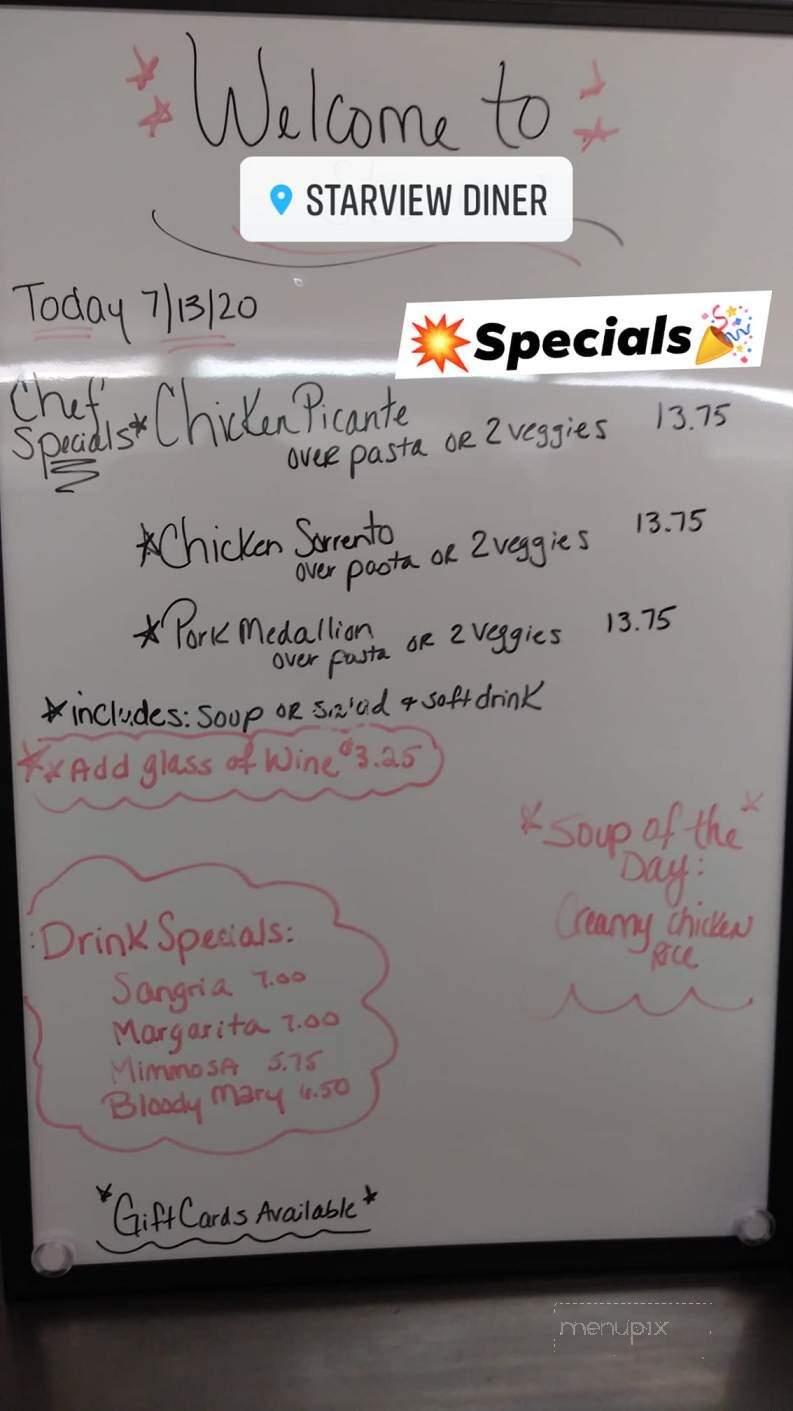 Welcome to
STARVIEW DINER
Today 7/13/20
Specials
Chef
Specials* Chicken Picante
over pasta OR 2 veggies 13.75
*Chicken Sorrento
over pasta OR 2 veggies 13.75
*Pork Medallion
over pasta OR 2 veggies 13.75
*includes: Soup OR Salad & soft drink
**Add glass of Wine $3.25
*Soup of the*
Day:
Creamy chicken
Rice
:Drink Specials:
Sangria 7.00
Margarita 7.00
Mimmosa 5.75
Bloody Mary 6.50
*Gift Cards Available*
menupix